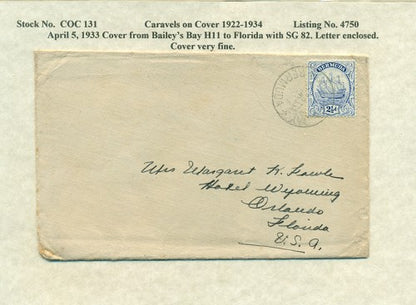 Stock No. COC 131 Caravels on Cover 1922-1934 Listing No. 4750
April 5, 1933 Cover from Bailey's Bay H11 to Florida with SG 82. Letter enclosed.
Cover very fine.
BERMUDA
BERMUDA
2½d
Mrs Margaret K. Fowle
Hotel Wyoming
Orlando
Florida
U.S.A.